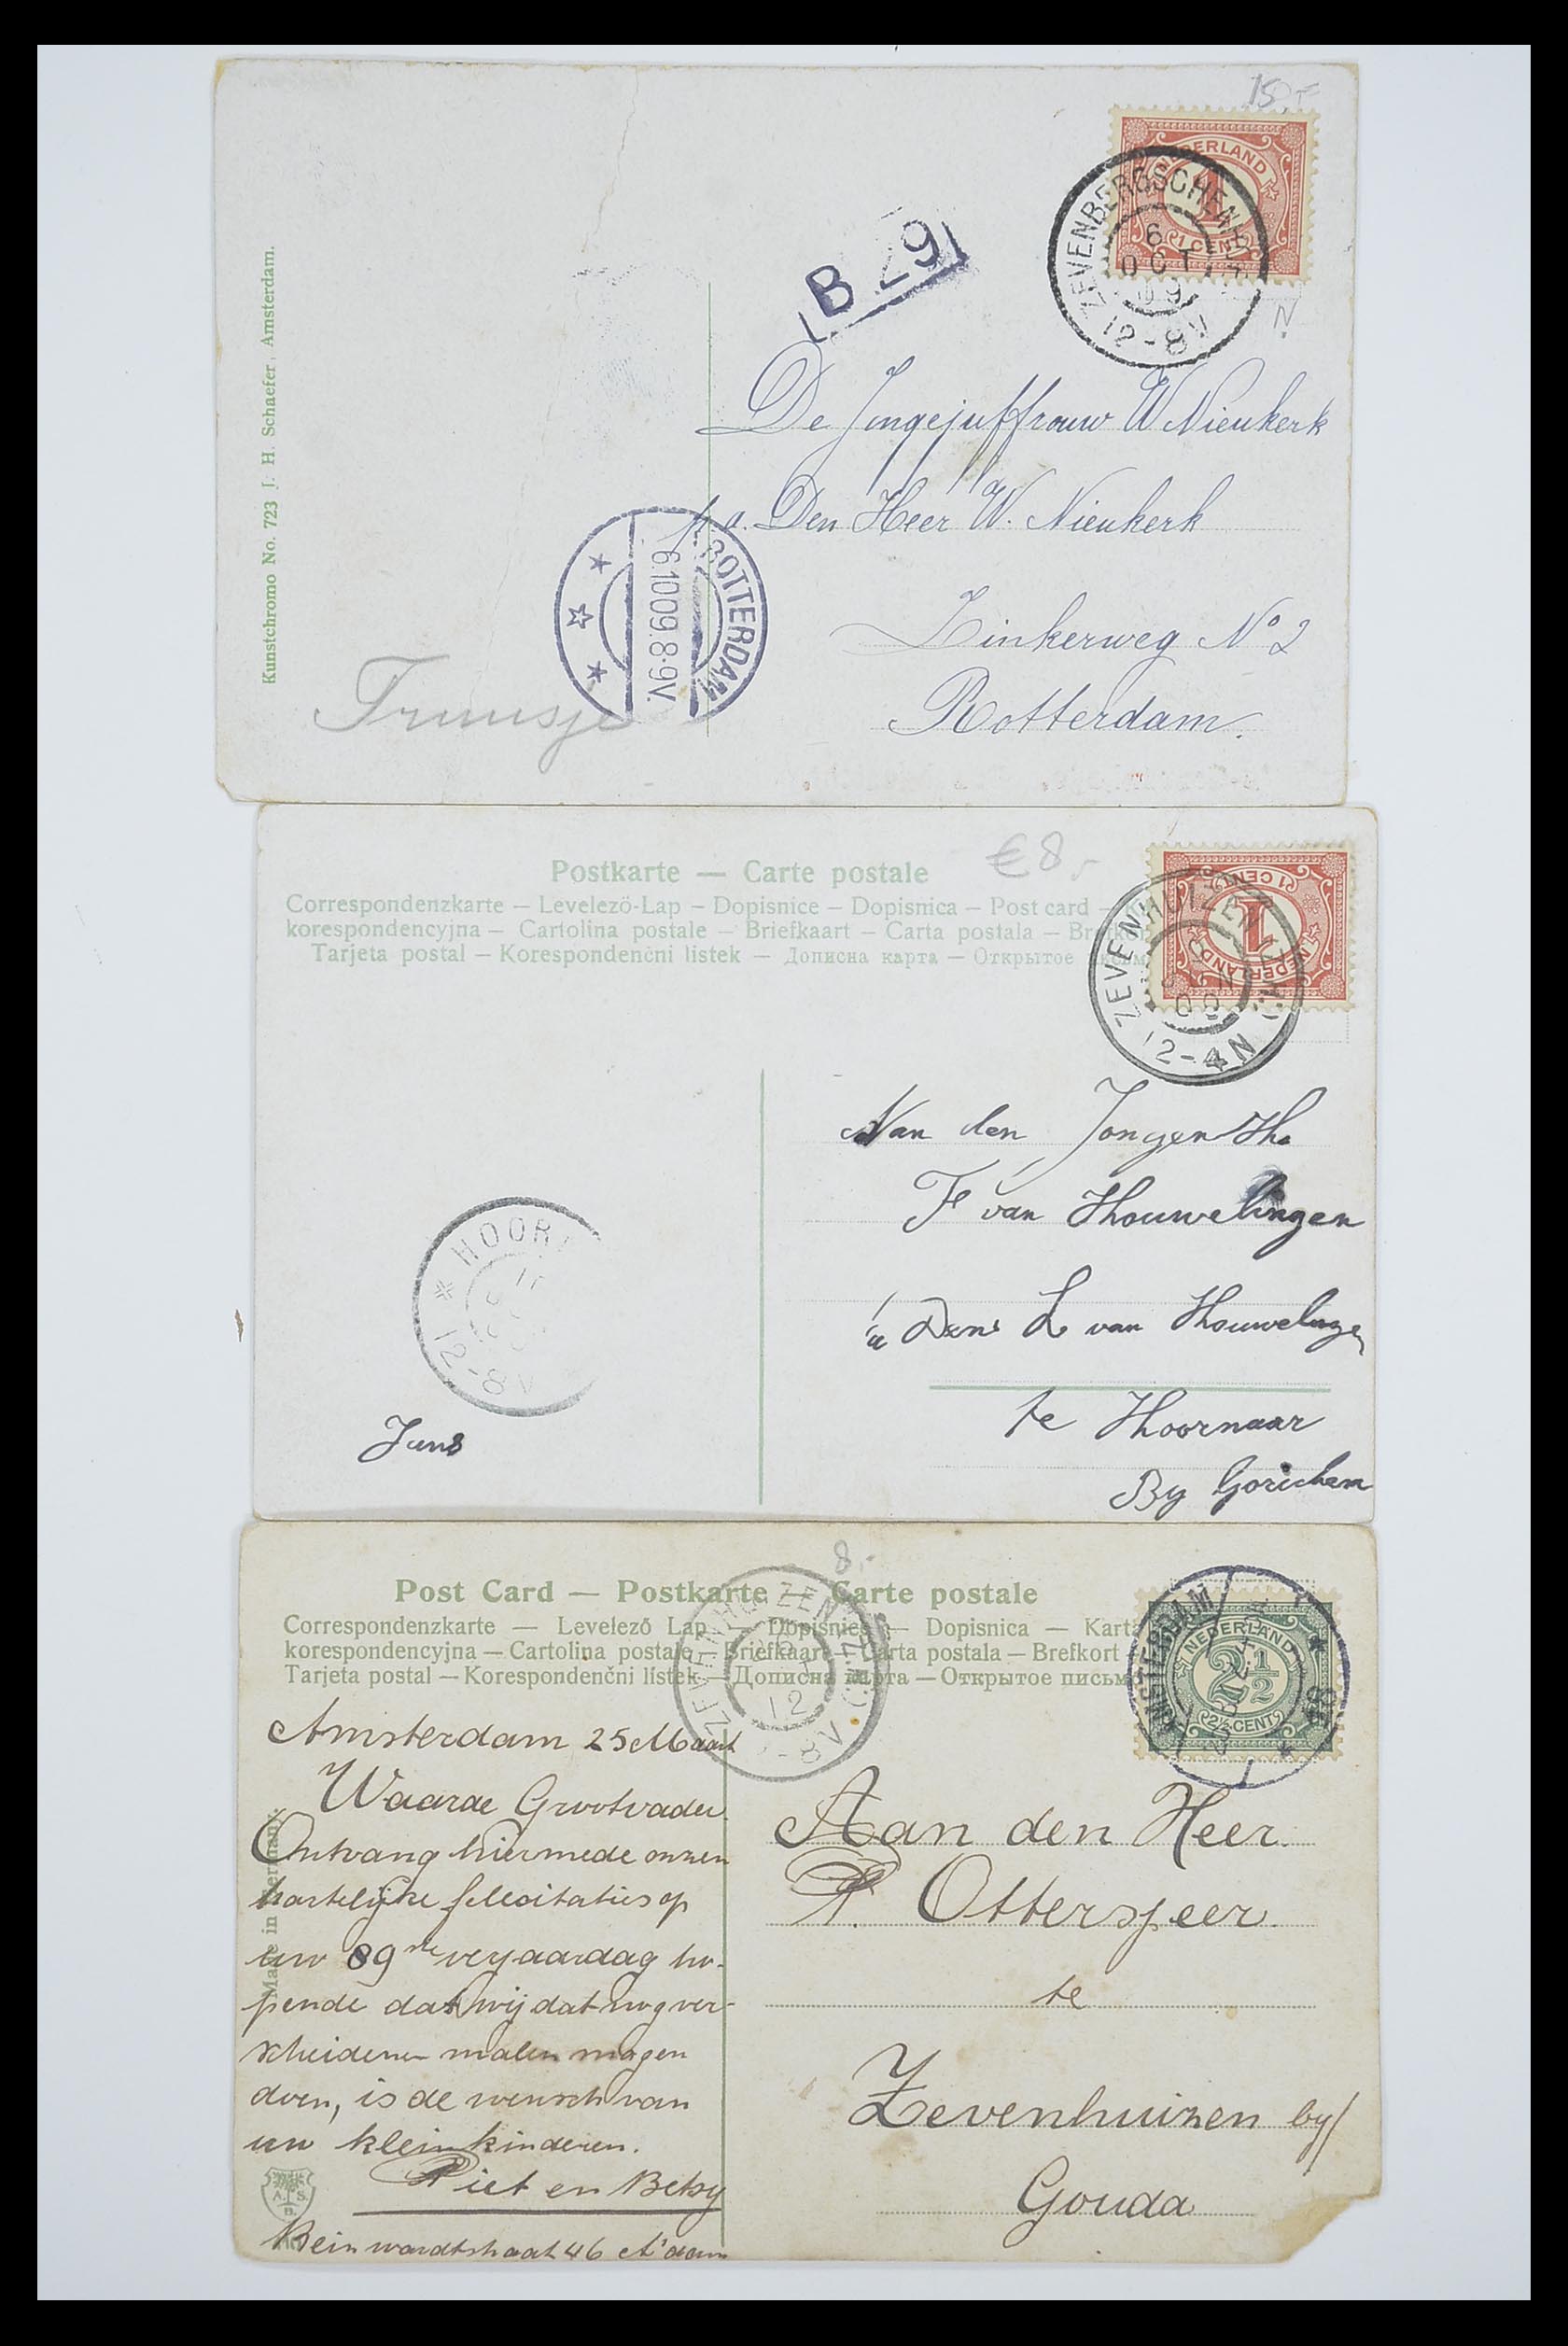 15,-
NEDERLAND
1
1 CENT
ZEVENBERGSCHENHOEK
6
OCT
09
12-8V
B 29
N
De Jongejuffrouw W Nieukerk
p.a. Den Heer W. Nieukerk
Zinkerweg No 2
Rotterdam.
ROTTERDAM
6.10 09.8-9V.
Kunstchromo No. 723 J. H. Schaefer, Amsterdam.
Truusje
Postkarte — Carte postale
€ 8,-
Correspondenzkarte — Levelező-Lap — Dopisnice — Dopisnica — Post card —
korespondencyjna — Cartolina postale — Briefkaart — Carta postala — Brefkort
Tarjeta postal — Korespondenční listek — Дописна карта — Открытое письмо
1 CENT
1
NEDERLAND
ZEVENHUIZEN (Z:H:)
JUN
09
12-4N
Aan den Jongen Hr
F van Houwelingen
a Dens L van Houwelingen
te Hoornaar
By Gorichem
HOOR
12-8V
Jans
8,-
Post Card — Postkarte — Carte postale
Correspondenzkarte — Levelező Lap — Dopisnice — Dopisnica — Karta
korespondencyjna — Cartolina postale — Briefkaart — Carta postala — Brefkort
Tarjeta postal — Korespondenční listek — Дописна карта — Открытое письмо
ZEVENHUIZEN (Z:H:)
12
-8V
AMSTERDAM
NEDERLAND
2½
2½ CENT
Made in Germany.
Amsterdam 25 Maart
Waarde Grootvader.
Ontvang hiermede onzen
hartelijke felicitaties op
uw 89ste verjaardag ho-
pende dat wij dat nog ver-
scheidene malen mogen
doen, is de wensch van
uw kleinkinderen.
Piet en Betsy
Reinwardtstraat 46 A'dam
A. S.
B.
Aan den Heer
P. Otterspeer
te
Zevenhuizen by/
Gouda